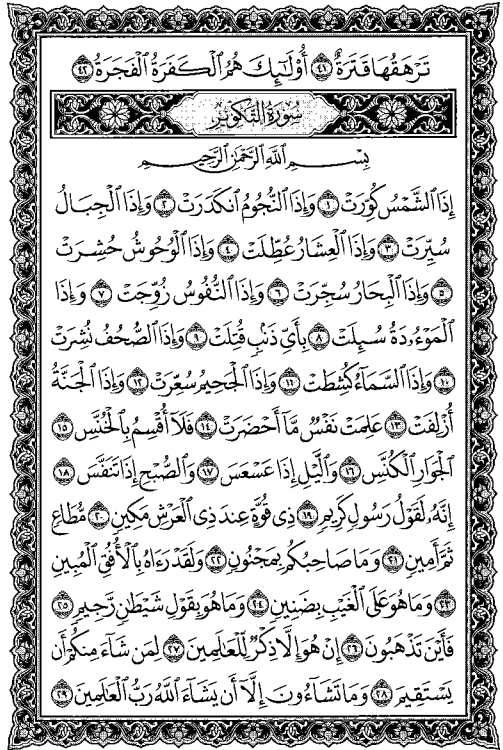 تَرۡهَقُهَا قَتَرَةٌ ٤١ أُوْلَـٰٓئِكَ هُمُ ٱلۡكَفَرَةُ ٱلۡفَجَرَةُ ٤٢
سُورَةُ التَّكْوِيرِ
بِسۡمِ ٱللَّهِ ٱلرَّحۡمَـٰنِ ٱلرَّحِيمِ
إِذَا ٱلشَّمۡسُ كُوِّرَتۡ ١ وَإِذَا ٱلنُّجُومُ ٱنكَدَرَتۡ ٢ وَإِذَا ٱلۡجِبَالُ
سُيِّرَتۡ ٣ وَإِذَا ٱلۡعِشَارُ عُطِّلَتۡ ٤ وَإِذَا ٱلۡوُحُوشُ حُشِرَتۡ
٥ وَإِذَا ٱلۡبِحَارُ سُجِّرَتۡ ٦ وَإِذَا ٱلنُّفُوسُ زُوِّجَتۡ ٧ وَإِذَا
ٱلۡمَوۡءُۥدَةُ سُئِلَتۡ ٨ بِأَيِّ ذَنۢبٖ قُتِلَتۡ ٩ وَإِذَا ٱلصُّحُفُ نُشِرَتۡ
١٠ وَإِذَا ٱلسَّمَآءُ كُشِطَتۡ ١١ وَإِذَا ٱلۡجَحِيمُ سُعِّرَتۡ ١٢ وَإِذَا ٱلۡجَنَّةُ
أُزۡلِفَتۡ ١٣ عَلِمَتۡ نَفۡسٞ مَّآ أَحۡضَرَتۡ ١٤ فَلَآ أُقۡسِمُ بِٱلۡخُنَّسِ ١٥
ٱلۡجَوَارِ ٱلۡكُنَّسِ ١٦ وَٱلَّيۡلِ إِذَا عَسۡعَسَ ١٧ وَٱلصُّبۡحِ إِذَا تَنَفَّسَ ١٨
إِنَّهُۥ لَقَوۡلُ رَسُولٖ كَرِيمٖ ١٩ ذِي قُوَّةٍ عِندَ ذِي ٱلۡعَرۡشِ مَكِينٖ ٢٠ مُّطَاعٖ
ثَمَّ أَمِينٖ ٢١ وَمَا صَاحِبُكُم بِمَجۡنُونٖ ٢٢ وَلَقَدۡ رَءَاهُ بِٱلۡأُفُقِ ٱلۡمُبِينِ
٢٣ وَمَا هُوَ عَلَى ٱلۡغَيۡبِ بِضَنِينٖ ٢٤ وَمَا هُوَ بِقَوۡلِ شَيۡطَـٰنٖ رَّجِيمٖ ٢٥
فَأَيۡنَ تَذۡهَبُونَ ٢٦ إِنۡ هُوَ إِلَّا ذِكۡرٞ لِّلۡعَـٰلَمِينَ ٢٧ لِمَن شَآءَ مِنكُمۡ أَن
يَسۡتَقِيمَ ٢٨ وَمَا تَشَآءُونَ إِلَّآ أَن يَشَآءَ ٱللَّهُ رَبُّ ٱلۡعَـٰلَمِينَ ٢٩